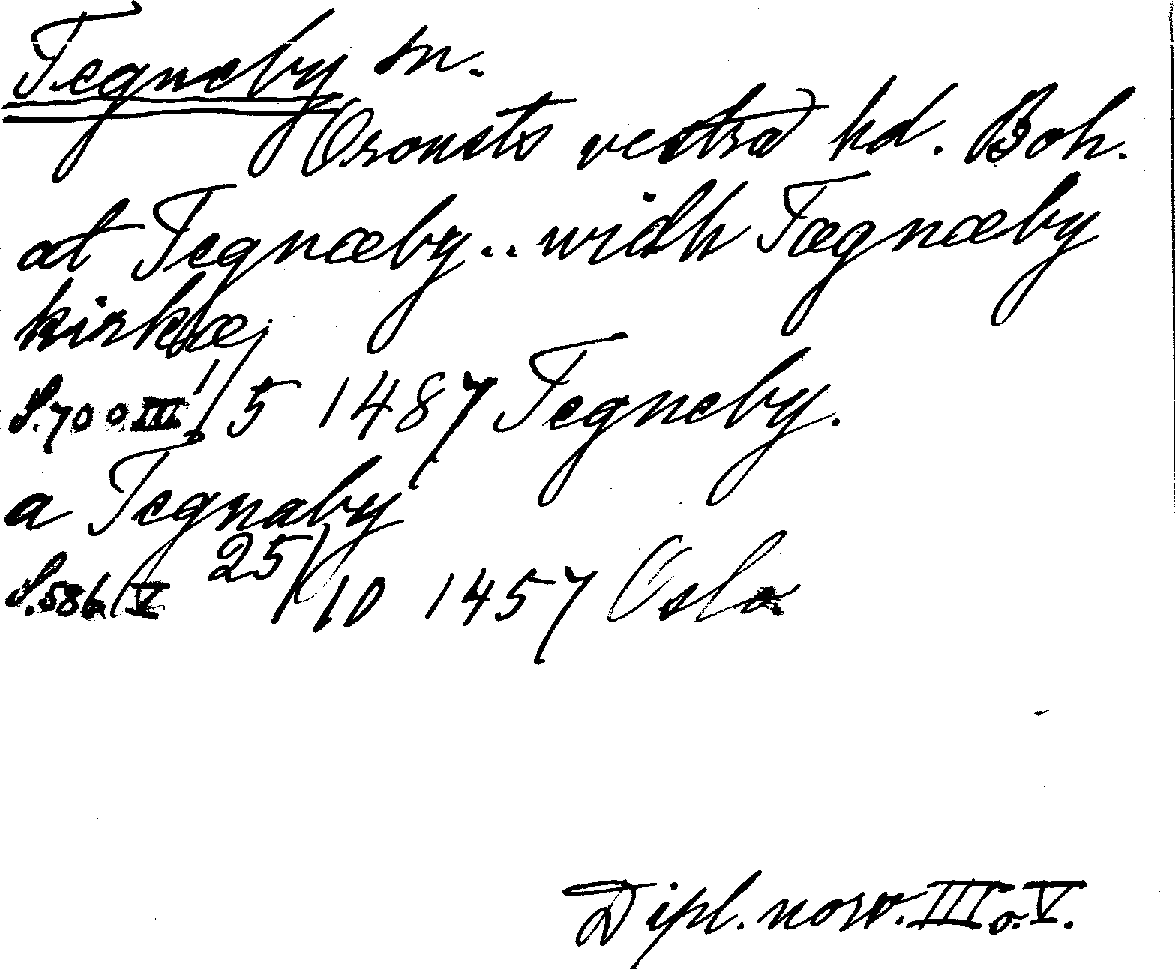 Tegneby sn.
Orousts vestra hd. Boh.
at Tegnæby.. widh Tægnæby
kirkæ
S.700 III. 1/5 1487 Tegneby.
a Tegnaby
S.586 V 25/10 1457 Oslo
Dipl. norv. III o. V.